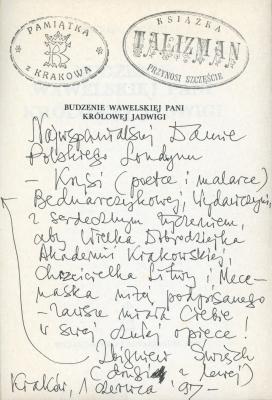 PAMIĄTKA
z KRAKOWA
KSIĄŻKA
TALIZMAN
PRZYNOSI SZCZĘŚCIE
BUDZENIE WAWELSKIEJ PANI
KRÓLOWEJ JADWIGI
Najwspanialszej Damie
Polskiego Londynu
– Krysi (poetce i malarce)
Bednarczykowej, Wydawczyni,
z serdecznym życzeniem,
aby Wielka Dobrodziejka
Akademii Krakowskiej,
Chrzcicielka Litwy i Mece-
naska niżej podpisanego
– zawsze miała Ciebie
w swej czułej opiece!
Zbigniew Święch
(drugi z lewej)
Kraków, 1 czerwca '97 –